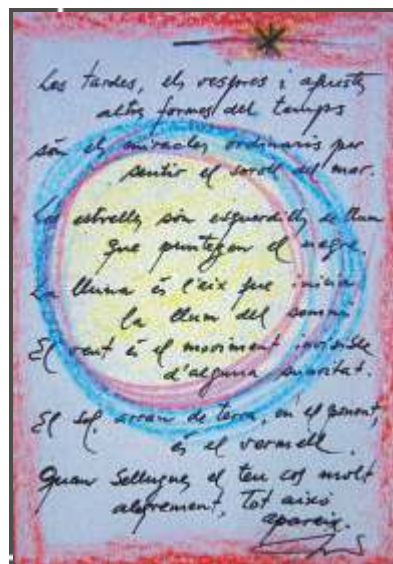 Les tardes, els vespres i aquestes
altres formes del temps
són els miracles ordinaris per
sentir el soroll del mar.
Les estrelles són esquerdilles de llum
que puntegen el negre.
La lluna és l'eix que inicia
la llum del somni
El vent és el moviment invisible
d'alguna suavitat.
El sol, arran de terra, en el ponent,
és el vermell.
Quan Sellugues el teu cos molt
alegrement, Tot això
apareix.